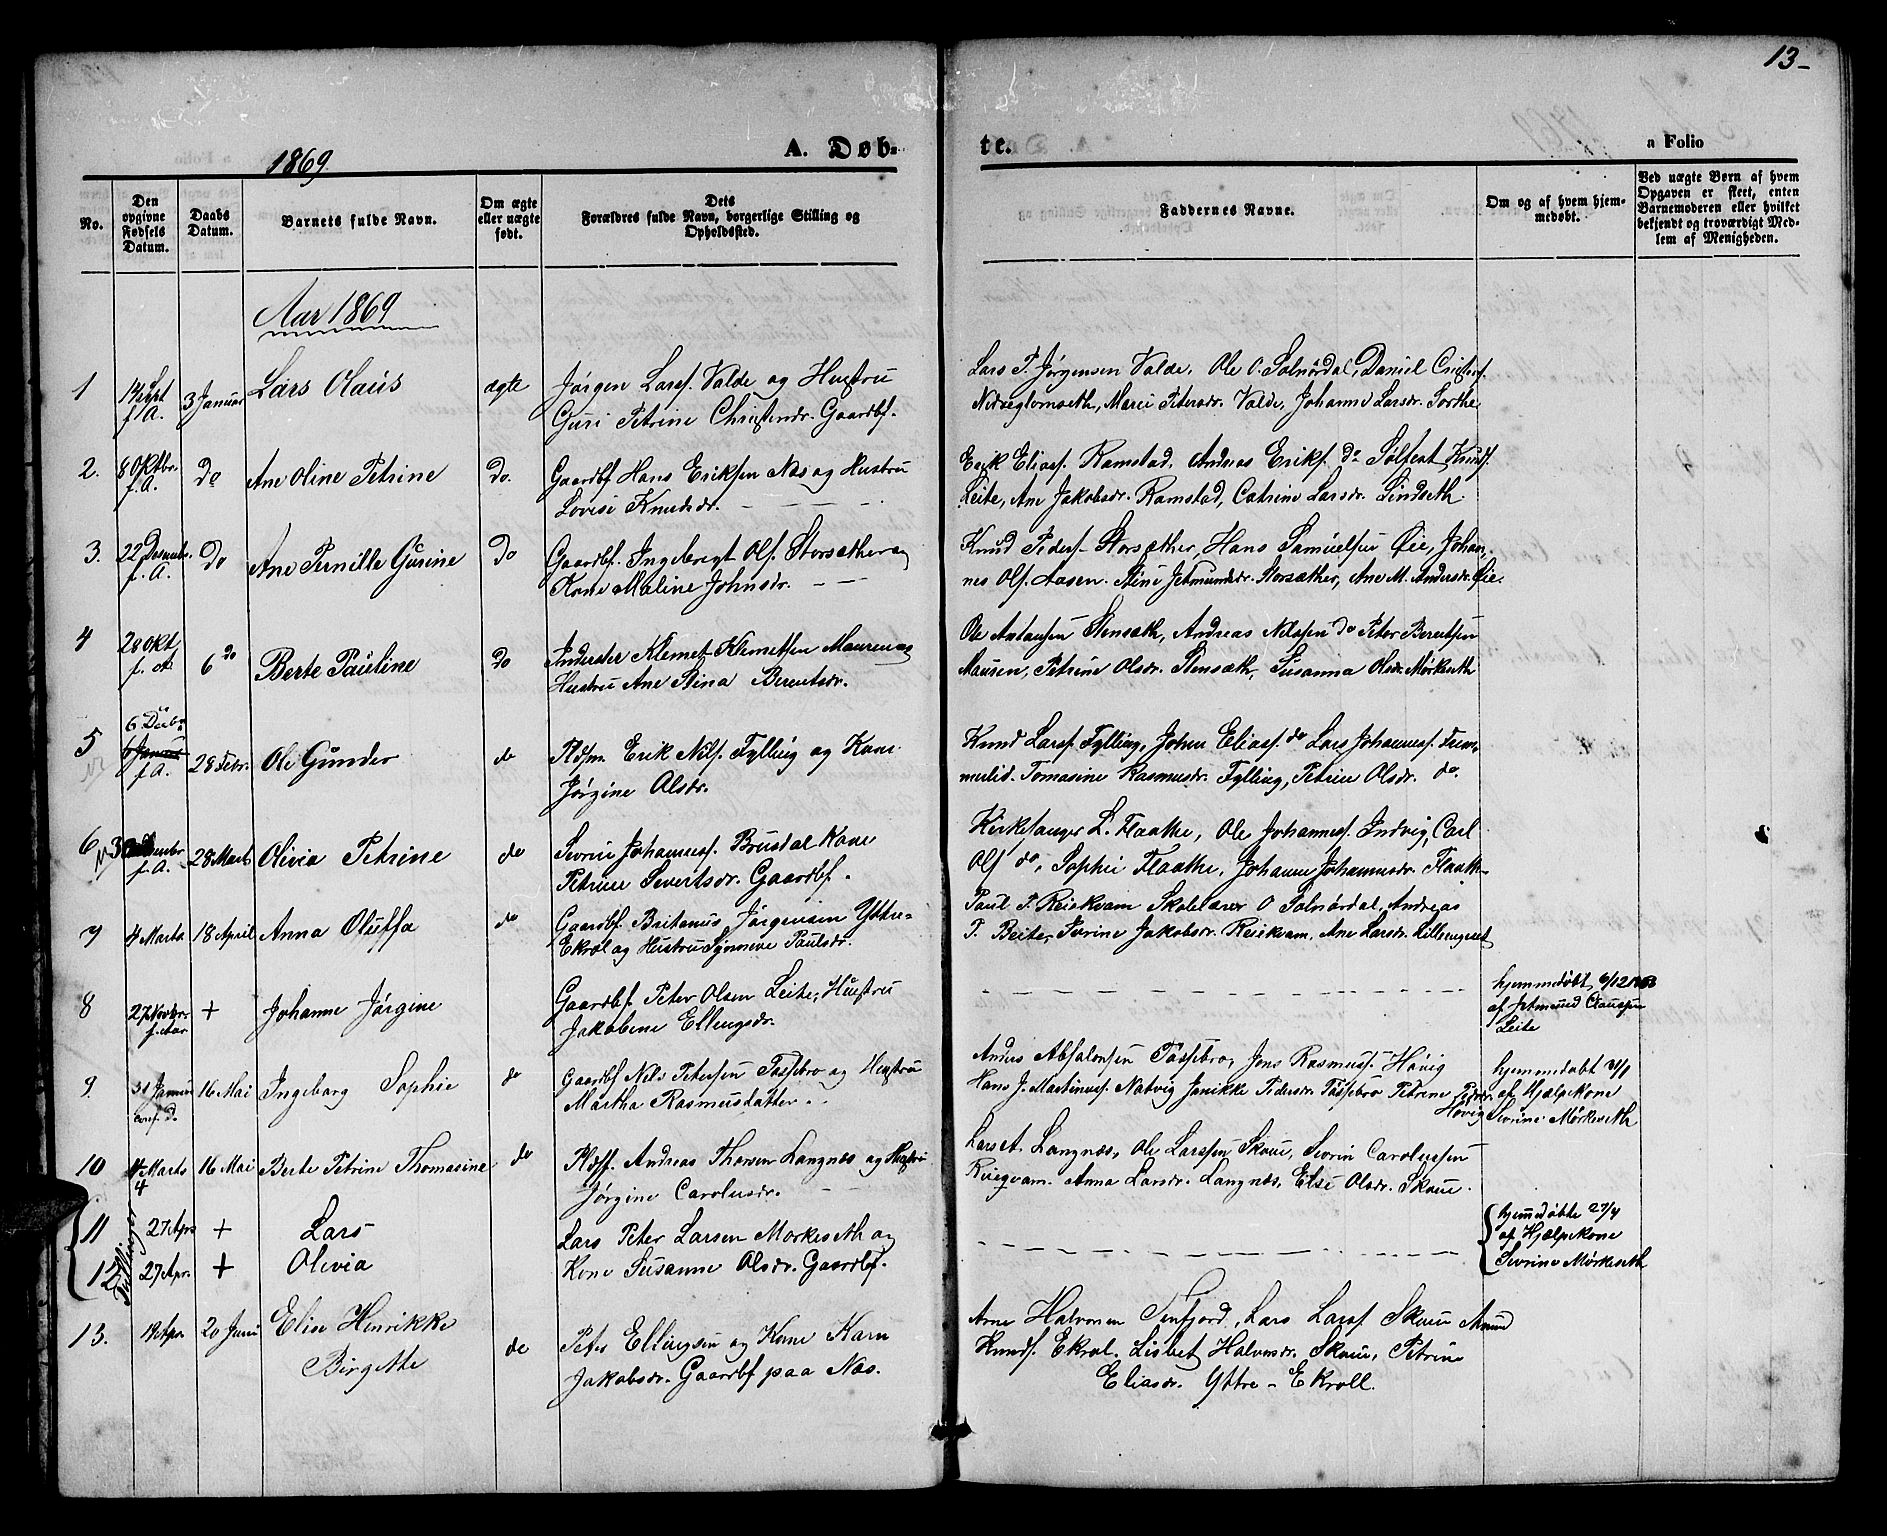 13-
1869.
A. Døb-
te.
a Folio
No.
Den opgivne Fødsels Datum.
Daabs Datum.
Barnets fulde Navn.
Om ægte eller uægte født.
Dets Forældres fulde Navn, borgerlige Stilling og Opholdssted.
Faddernes Navne.
Om og af hvem hjemmedøbt.
Ved uægte Børn af hvem Opgaven er skeet, enten Barnemoderen eller hvilket bekjendt og troværdigt Medlem af Menigheden.
Aar 1869
1 14 Sept f. A. 3 Januar Lars Olaus ægte Jørgen Larss. Valde og Hustru
Guri Petrine Christensdr. Gaardbf.
Lars P. Jørgensen Valde, Ole O. Solnørdal, Daniel
Marie Petersdr. Valde, Johanne Larsdr.
2. 8 Oktbr. f. A. do Ane Oline Petrine do. Gaardbf Hans Eriksen Næs og Hustru
Lovise Knudsdr. - - -
Erik Eliass. Ramstad, Andreas Eriks. do Sølfest Knuds.
Leite, Ane Jakobsdr. Ramstad, Catrine Larsdr. Lindseth
3. 22 Decembr. f. A. Do Ane Pernille Gurine Do Gaardbf. Ingebrigt Ols. Storsæther og
Kone Maline Johnsdr. - -
Knud Peders. Storsæther, Hans Samuelsen Øie, Johan-
nes Ols. Aasen. Stine Jetmundsdr. Storsæther, Ane M. Andersdr. Øie.
4 28 Okt f. A. 6 do Berte Pauline do Inderster Klemet Klemetsen Mauren og
Hustru Ane Stina Berentsdr.
Ole Stensæth, Andreas Nilssen do Peter Berentsen
Mauren, Petrine Olsdr. Stensæth, Susanna Olsdr. Mørkeseth
5 6 Decbr. Januar f. A. 28 Febr. Ole Gunder do Pldsm. Erik Nils. Fylling og Kone
Jørgine Olsdr.
Knud Larss. Fylling, Johan Eliass. do Lars Johanness. Frem-
mulid. Tomasine Rasmusdr. Fylling, Petrine Olsdr. do.
6 3 f. A. 28 Marts Olivia Petrine do Sevrin Johanness. Brusdal Kone
Petrine Severtsdr. Gaardbf.
Kirkesanger L. Flaathe, Ole Johanness. Indvig, Carl
Ols do, Sophie Flaathe, Johanne Johannesdr. Flaathe
7 4 Marts 18 April Anna Oluffa do Gaardbf. Britanus Jørgensen Yttre-
Ekrol og Hustru Synneve Paulsdr.
Paul P. Reiskvam Skolelærer O Solnørdal, Andreas
T. Beite, Sevrine Jakobsdr. Reiskvam, Ane Larsdr. Lillengeset
8 27 Novbr. f. Aar + Johanne Jørgine Gaardbf. Peter Olsen Leite, Hustru
Jakobine Ellingsdr.
- - - - - - -
hjemmedøbt 6/12 1868
af Jetmund Claussen
Leite
9. 31 Januar conf. d. 16 Mai Ingeborg Sophie do Gaardbf Nils Petersen Tassebro og Hustru
Martha Rasmusdatter. -
Anders Absalonsen Tassebro, Jens Rasmuss. Høvig
Hans J. Martinuss. Natvig Janikke Pedersdr. Tassebro Petrine Pedrdr. Høvig
hjemmedøbt 31/1
af Hjælpekone
Sevrine Mørkeseth
10 Marts 4 16 Mai Berte Petrine Thomasine do Pldsf. Andreas Thorsen Langnæs og Hustru
Jørgine Carolusdr. - -
Lars Langnæs, Ole Larssen Skoue, Sevrin Carolussen
Anna Larsdr. Langnæs, Else Olsdr. Skoue.
11 27 Apr + Lars
12 27 Apr. + Olivia
Tvillinger
Lars Peter Larsen Mørkeseth og
Kone Susanne Olsdr. Gaardbf.
- - - - - - -
hjemmedøbte 27/4
af Hjælpekone
Sevrine Mørkeseth
13. 19 Apr 20 Juni Elise Henrikke
Birgette
do Peter Ellingsen og Kone Karn
Jakobsdr. Gaardbf paa Næs.
Arne Halvorsen Tenfjord, Lars Larss Skoue Amund
Knuds. Ekrol. Lisbet Halvorsdr. Skoue, Petrine
Eliasdr. Yttre-Ekroll.